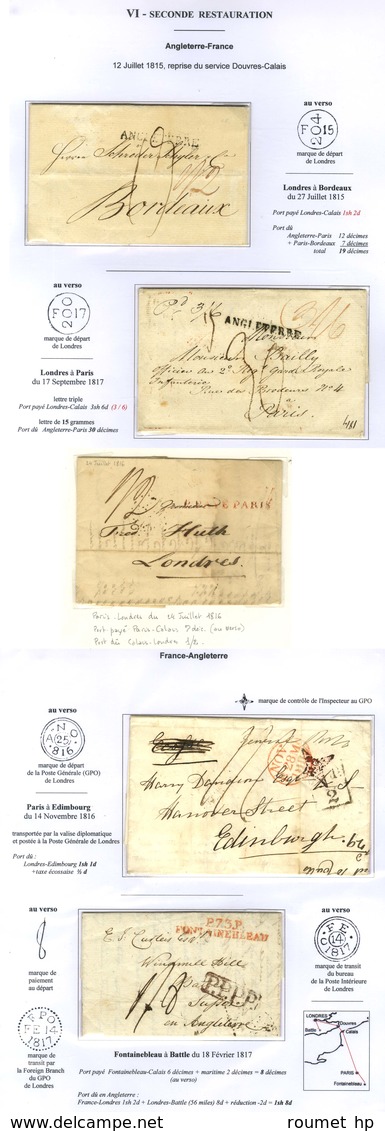 VI - SECONDE RESTAURATION
Angleterre-France
12 Juillet 1815, reprise du service Douvres-Calais
au verso
24
FO 15
marque de départ
de Londres
ANGLETERRE
Bordeaux
Londres à Bordeaux
du 27 Juillet 1815
Port payé Londres-Calais 1sh 2d
Port dû
Angleterre-Paris 12 décimes
+ Paris-Bordeaux 7 décimes
total 19 décimes
au verso
FO 17
marque de départ
de Londres
Londres à Paris
du 17 Septembre 1817
lettre triple
Port payé Londres-Calais 3sh 6d (3 / 6)
lettre de 15 grammes
Port dû Angleterre-Paris 30 décimes
Pd 3/6
ANGLETERRE
3/6
Monsieur
Monsieur Bailly
Officier au 2e Regt Garde Royale
Infanterie
Rue des Brodeurs No 4
à
Paris
14 Juillet 1816
1/2
DE PARIS
Monsieur
Fred. Huth
Londres.
Paris - Londres du 14 Juillet 1816
Port payé Paris-Calais 7 déc. (au verso)
Port dû Calais-Londres 1/2.
France-Angleterre
marque de contrôle de l'Inspecteur au GPO
au verso
NO
A (25)
816
marque de départ
de la Poste Générale (GPO)
de Londres
Paris à Edimbourg
du 14 Novembre 1816
transportée par la valise diplomatique
et postée à la Poste Générale de Londres
Port dû :
Londres-Edimbourg 1sh 1d
+taxe écossaise ½ d
Hanover Street
Edinburgh
au verso
8
marque de
paiement
au départ
FPO
FE 14
1817
marque de
transit par
la Foreign Branch
du GPO
de Londres
P.75.P.
FONTAINEBLEAU
Windmill Hill
Sussex
en Angleterre
P.P.P.P.
1/8
au verso
FE
14
1817
marque de transit
du bureau de
la Poste Intérieure
de Londres
LONDRES
Battle
Douvres
Calais
PARIS
Fontainebleau
Fontainebleau à Battle du 18 Février 1817
Port payé Fontainebleau-Calais 6 décimes + maritime 2 décimes = 8 décimes
(au verso)
Port dû en Angleterre :
France-Londres 1sh 2d + Londres-Battle (56 miles) 8d + réduction -2d = 1sh 8d
www.roumet hp